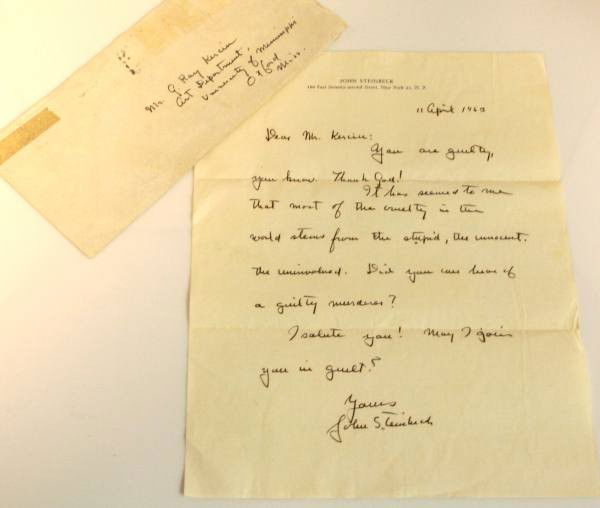 Mr. G Ray Kerciu
Art Department,
University of Mississippi
Oxford
Miss.
JOHN STEINBECK
Street, New York 21, N. Y.
11 April 1963
Dear Mr. Kerciu:
You are guilty,
you know. Thank God!
It has seemed to me
that most of the cruelty in the
world stems from the stupid, the innocent.
the uninvolved. Did you ever hear of
a guilty murderer?
I salute you! May I join
you in guilt?
Yours
John Steinbeck